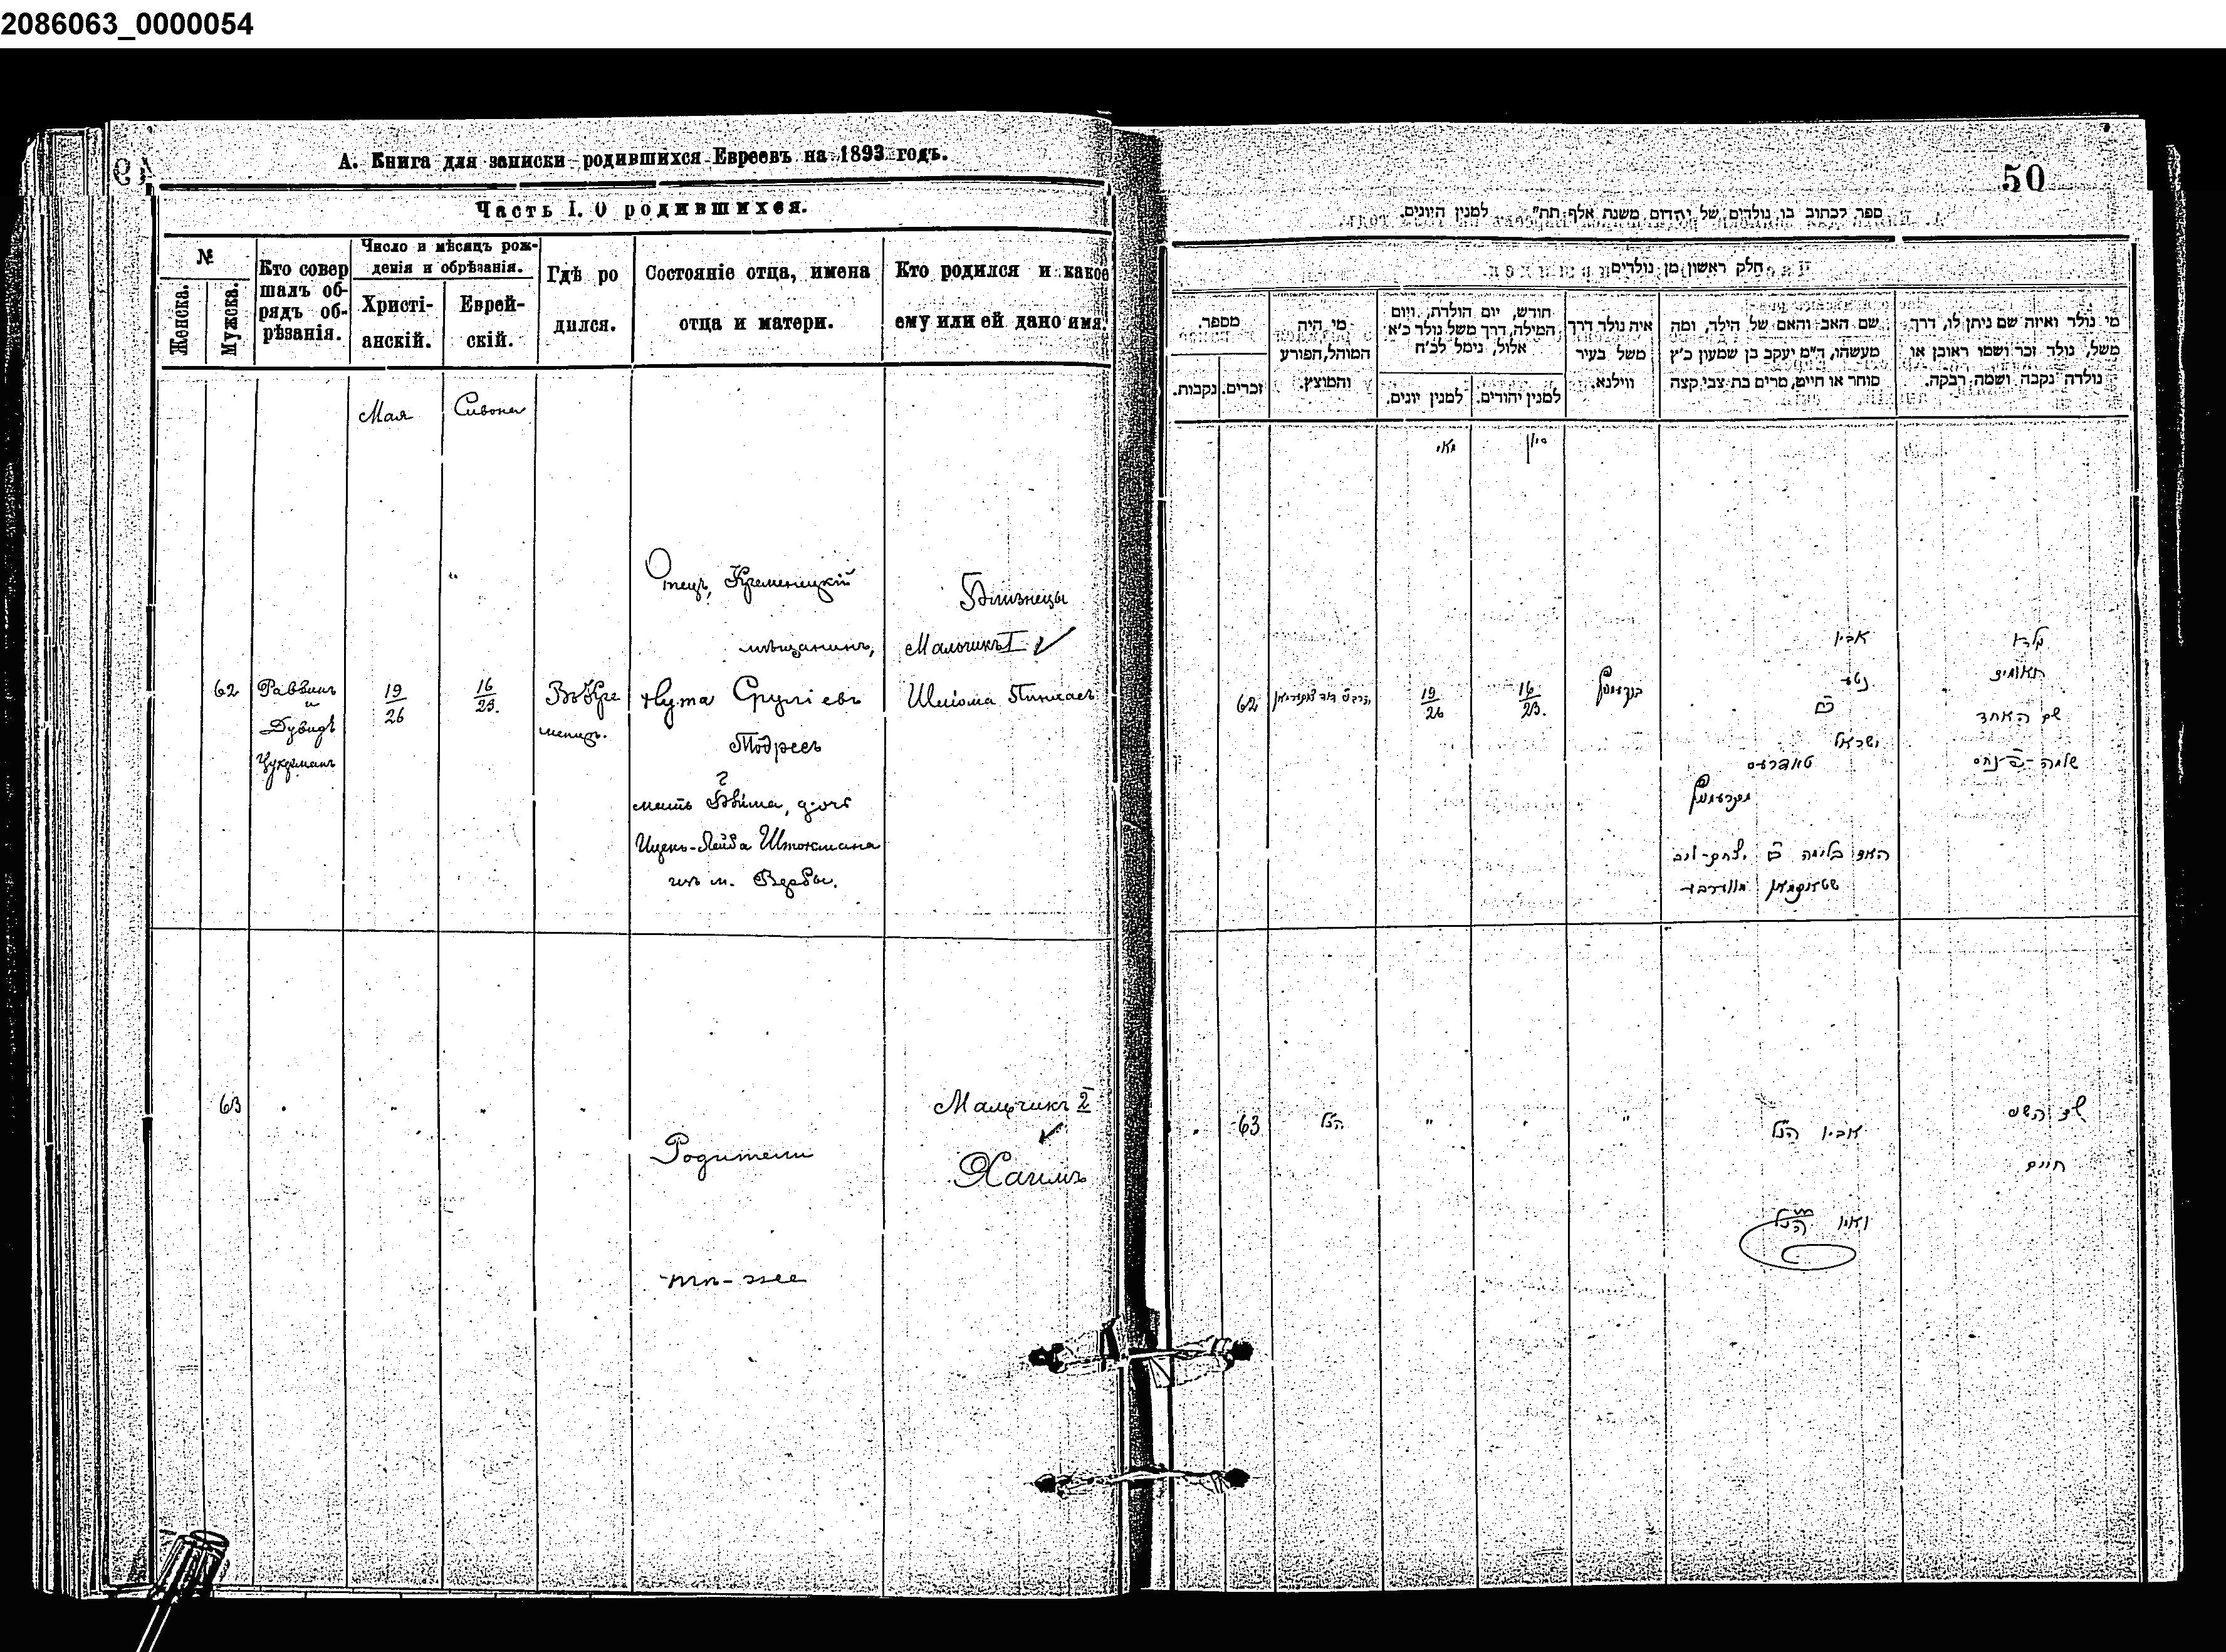 2086063_0000054
А. Книга для записки родившихся Евреевъ на 1893 годъ.
Часть I. О родившихся.
№
Женска.
Мужска.
Кто совер
шалъ об-
рядъ об-
рѣзанія.
Число и мѣсяцъ рож-
денія и обрѣзанія.
Христі-
анскій.
Еврей-
скій.
Гдѣ ро
дился.
Состояніе отца, имена
отца и матери.
Кто родился и какое
ему или ей дано имя.
Мая
Сивона
62
Раввинъ
и
Дувидъ
Цукерманъ
19
26
16
23.
Въ Кре
менцѣ.
Отецъ, Кременецкій
мѣщанинъ,
Нута Сруліевъ
Тодресъ
мать Блима, дочь
Ицекъ-Лейба Штокмана
изъ м. Вербы.
Близнецы
Мальчикъ I
Шлiома Пинхасъ
63
Родители
тѣ-же
Мальчикъ 2
Хаимъ
50
ספר לכתוב בו נולדים של יהדום משנת אלף תת" למנין היונים.
חלק ראשון מן נולדים
מספר.
נקבות.
זכרים.
מי היה
המוהל, הפורע
והמוצץ.
חודש, יום הולדת, ויום
המילה, דרך משל נולד כ'א
אלול, נימל לכ'ח
למנין יונים.
למנין יהודים.
איה נולד דרך
משל בעיר
ווילנא.
שם האב והאם של הילד, ומה
מעשהו, ה"מ יעקב בן שמעון כ'ץ
סוחר או חייט, מרים בת צבי קצה
מי נולד ואיזה שם ניתן לו, דרך
משל, נולד זכר ושמו ראובן או
נולדה נקבה ושמה רבקה.
מאי
סיון
62
19
26
16
23.
אביו
נטע
ב"ר
ישראל
טאדרעס
האם בלימה ב"ר יצחק-ליב
שטאקמאן
תאומים
שם האחד
שלמה-פינחס
63
הנ"ל
"
"
"
אביו הנ"ל
ואמו הנ"ל
שם השני
חיים